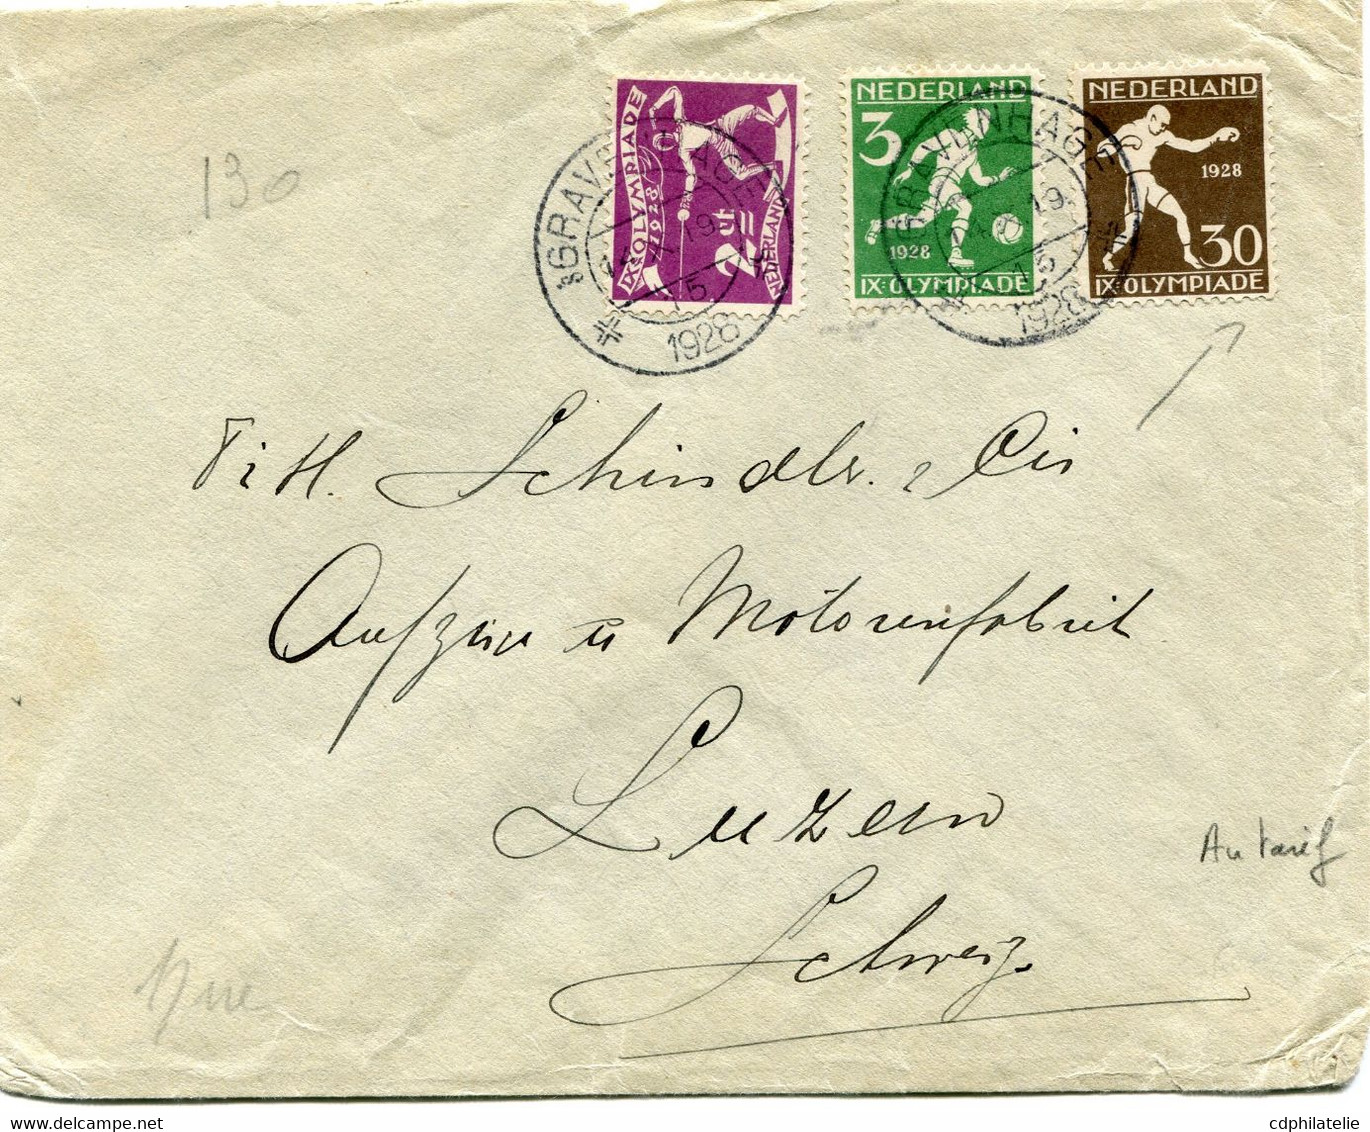 130
IXE OLYMPIADE 1928
2½ ct
NEDERLAND
NEDERLAND
3
1928
IXE OLYMPIADE
NEDERLAND
1928
30
IXE OLYMPIADE
'sGRAVENHAGE
15 X 19
1928
'sGRAVENHAGE
15 X 19
1928
Titl. Schindler & Cie
Aufzüge u Motorenfabrik
Luzern
Au tarif
Schweiz.
cdphilatelie